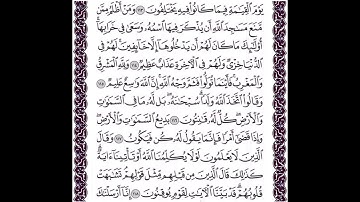 يَوْمَ ٱلْقِيَٰمَةِ فِيمَا كَانُوا۟ فِيهِ يَخْتَلِفُونَ ١١٣ وَمَنْ أَظْلَمُ مِمَّن
مَّنَعَ مَسَٰجِدَ ٱللَّهِ أَن يُذْكَرَ فِيهَا ٱسْمُهُۥ وَسَعَىٰ فِى خَرَابِهَآ
أُو۟لَٰٓئِكَ مَا كَانَ لَهُمْ أَن يَدْخُلُوهَآ إِلَّا خَآئِفِينَ لَهُمْ فِى
ٱلدُّنْيَا خِزْىٌ وَلَهُمْ فِى ٱلْءَاخِرَةِ عَذَابٌ عَظِيمٌ ١١٤ وَلِلَّهِ ٱلْمَشْرِقُ
وَٱلْمَغْرِبُ فَأَيْنَمَا تُوَلُّوا۟ فَثَمَّ وَجْهُ ٱللَّهِ إِنَّ ٱللَّهَ وَٰسِعٌ عَلِيمٌ ١١٥
وَقَالُوا۟ ٱتَّخَذَ ٱللَّهُ وَلَدًا سُبْحَٰنَهُۥ بَل لَّهُۥ مَا فِى ٱلسَّمَٰوَٰتِ
وَٱلْأَرْضِ كُلٌّ لَّهُۥ قَٰنِتُونَ ١١٦ بَدِيعُ ٱلسَّمَٰوَٰتِ وَٱلْأَرْضِ
وَإِذَا قَضَىٰٓ أَمْرًا فَإِنَّمَا يَقُولُ لَهُۥ كُن فَيَكُونُ ١١٧ وَقَالَ
ٱلَّذِينَ لَا يَعْلَمُونَ لَوْلَا يُكَلِّمُنَا ٱللَّهُ أَوْ تَأْتِينَآ ءَايَةٌ
كَذَٰلِكَ قَالَ ٱلَّذِينَ مِن قَبْلِهِم مِّثْلَ قَوْلِهِمْ تَشَٰبَهَتْ
قُلُوبُهُمْ قَدْ بَيَّنَّا ٱلْءَايَٰتِ لِقَوْمٍ يُوقِنُونَ ١١٨ إِنَّآ أَرْسَلْنَٰكَ